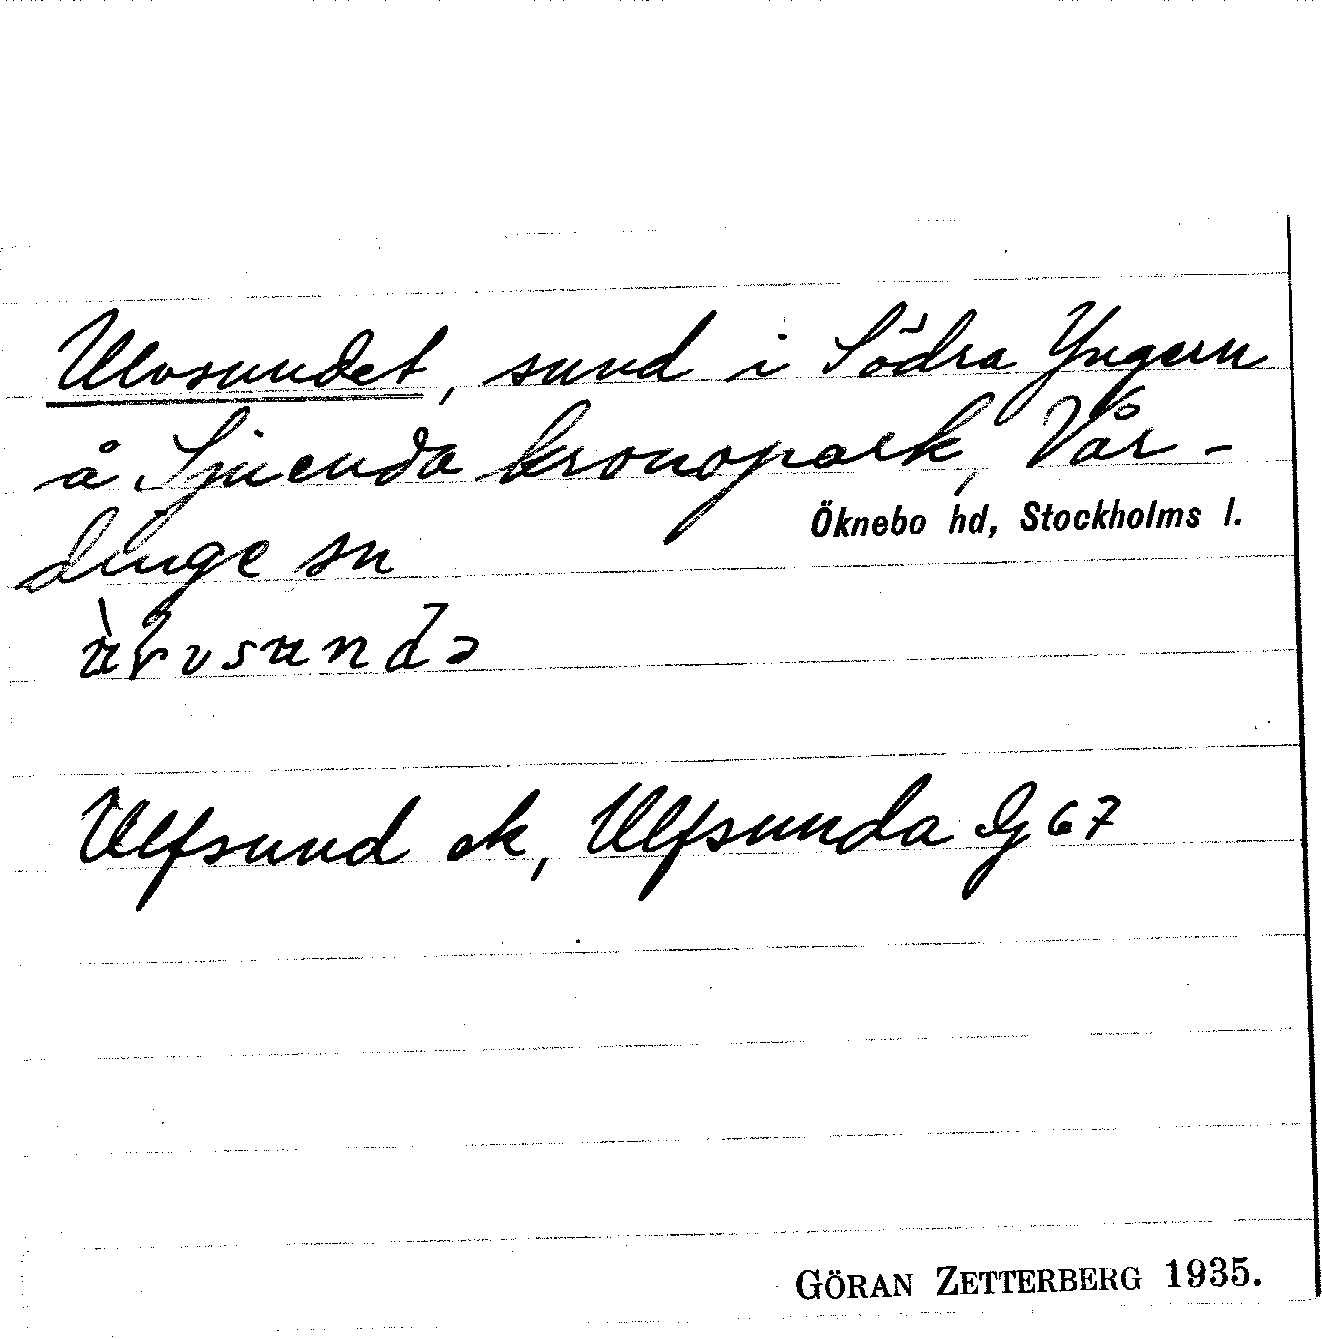 Ulvsundet, sund i Södra Yngern
å Sjuenda kronopark, Vår-
dinge sn
Öknebo hd, Stockholms l.
Ulfsund ek, Ulfsunda Ig 67
GÖRAN ZETTERBERG 1935.